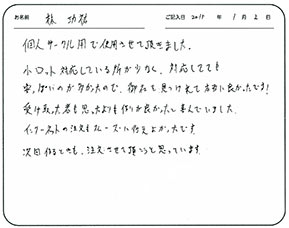 お名前 林 ご記入日 201 年 1月 2日
個人サークル用で使用させて頂きました。
小ロット対応している所が少なく、対応してても
高いのが多かったので、御社を見つけて本当に良かったです!
受け取った者も思ったよりも作りが良かったと喜んでいました。
インターネットの注文もスムーズに行えよかったです。
次回作るときも、注文させて頂こうと思っています。